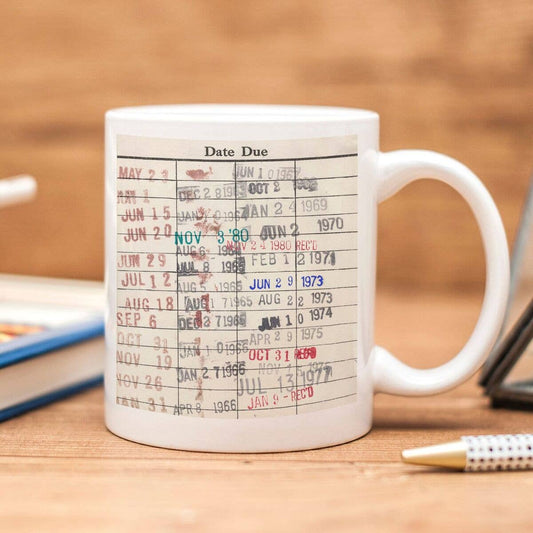 Date Due
MAY 23
JUN 1
JUN 15
JUN 20
JUN 29
JUL 12
AUG 18
SEP 6
OCT 31
NOV 19
NOV 26
JAN 31
DEC 28
JAN 1964
NOV 3 '80
AUG 6 1964
JUL 8 1965
AUG 1965
AUG 17 1965
DEC 27 1965
JAN 10 1966
JAN 27 1966
APR 8 1966
JUN 10 1967
OCT 2
JAN 24 1969
JUN 2 1970
NOV 24 1980 REC'D
FEB 12 1971
JUN 29 1973
AUG 22 1973
JUN 10 1974
APR 29 1975
OCT 31
NOV 1
JUL 13 1977
JAN 9 - REC'D